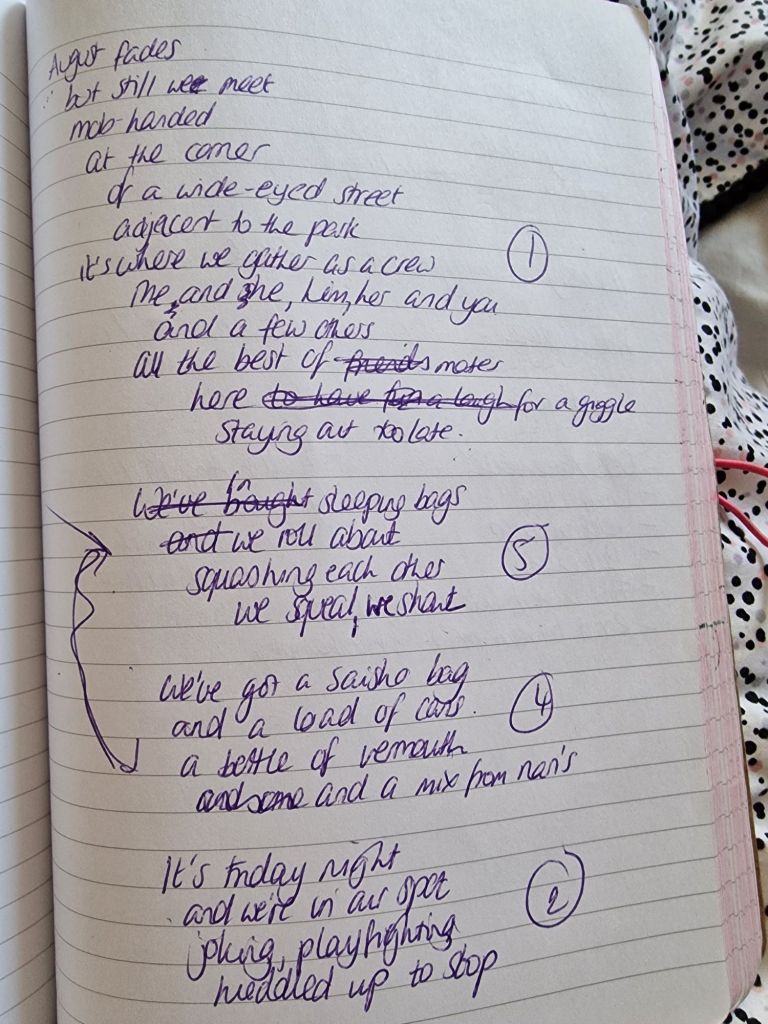 August fades
but still we meet
mob-handed
at the corner
of a wide-eyed street
adjacent to the park
it's where we gather as a crew
①
me, and she, him, her and you
and a few others
all the best of friends mates
here to have fun a laugh for a giggle
staying out too late.
We've bought In sleeping bags
and we roll about
squashing each other
⑤
we squeal, we shout
We've got a Saisho bag
and a load of cans.
④
a bottle of vermouth
and some and a mix from nan's
It's Friday night
and we're in our spot
②
joking, playfighting
huddled up to stop